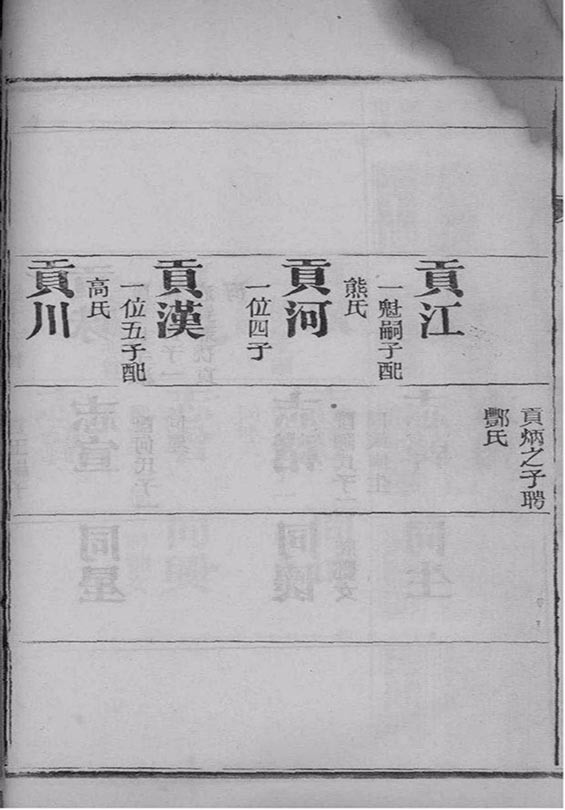 貢炳之子聘
酆氏
貢江
一魁嗣子配
熊氏
貢河
一位四子
貢漢
一位五子配
高氏
貢川